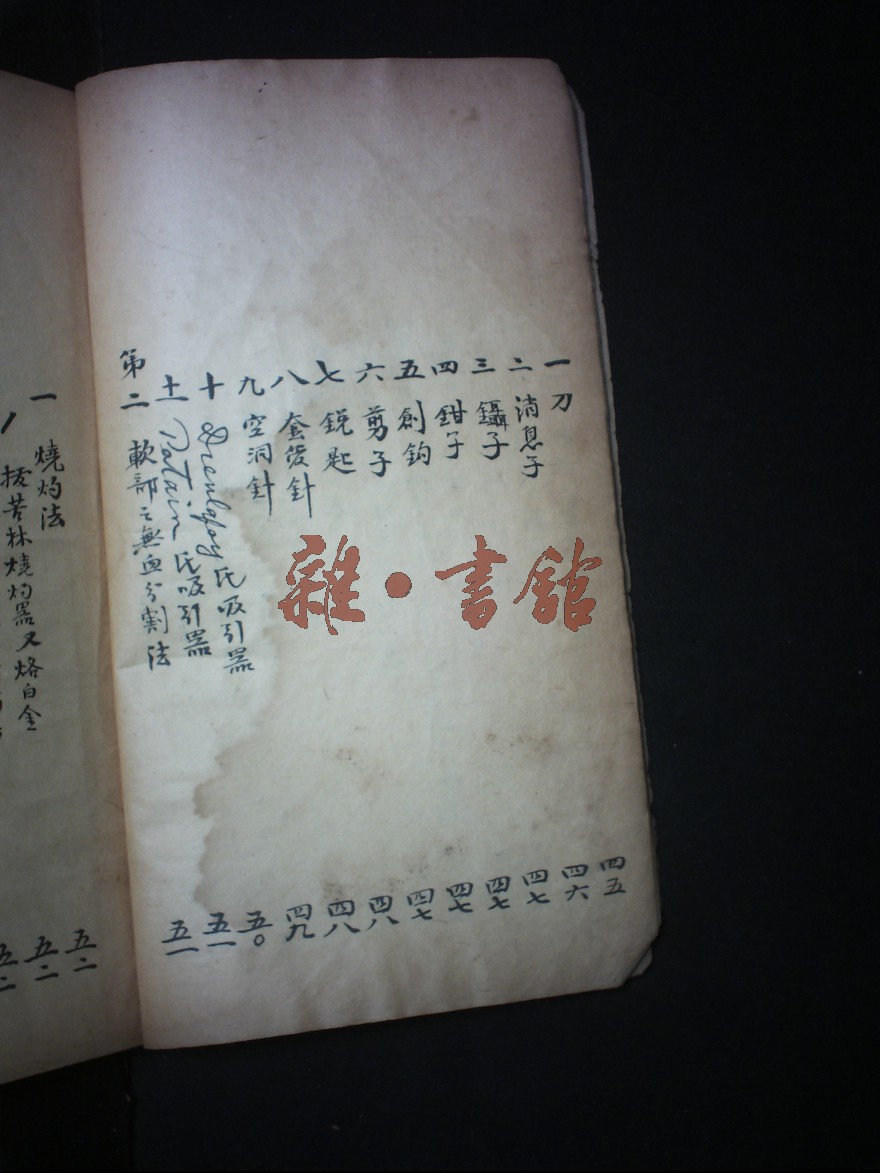 一 刀 四五
二 消息子 四六
三 鑷子 四七
四 鉗子 四七
五 創鈎 四七
六 剪子 四七
七 銳匙 四八
八 套 針 四八
九 空洞針 四九
十 氏吸引器 五〇
十一 Potain 氏吸引器 五一
第二 軟部之無血分割法 五一
一 燒灼法 五二
拔苦林燒灼器又烙白金 五二
五二
雜·書館